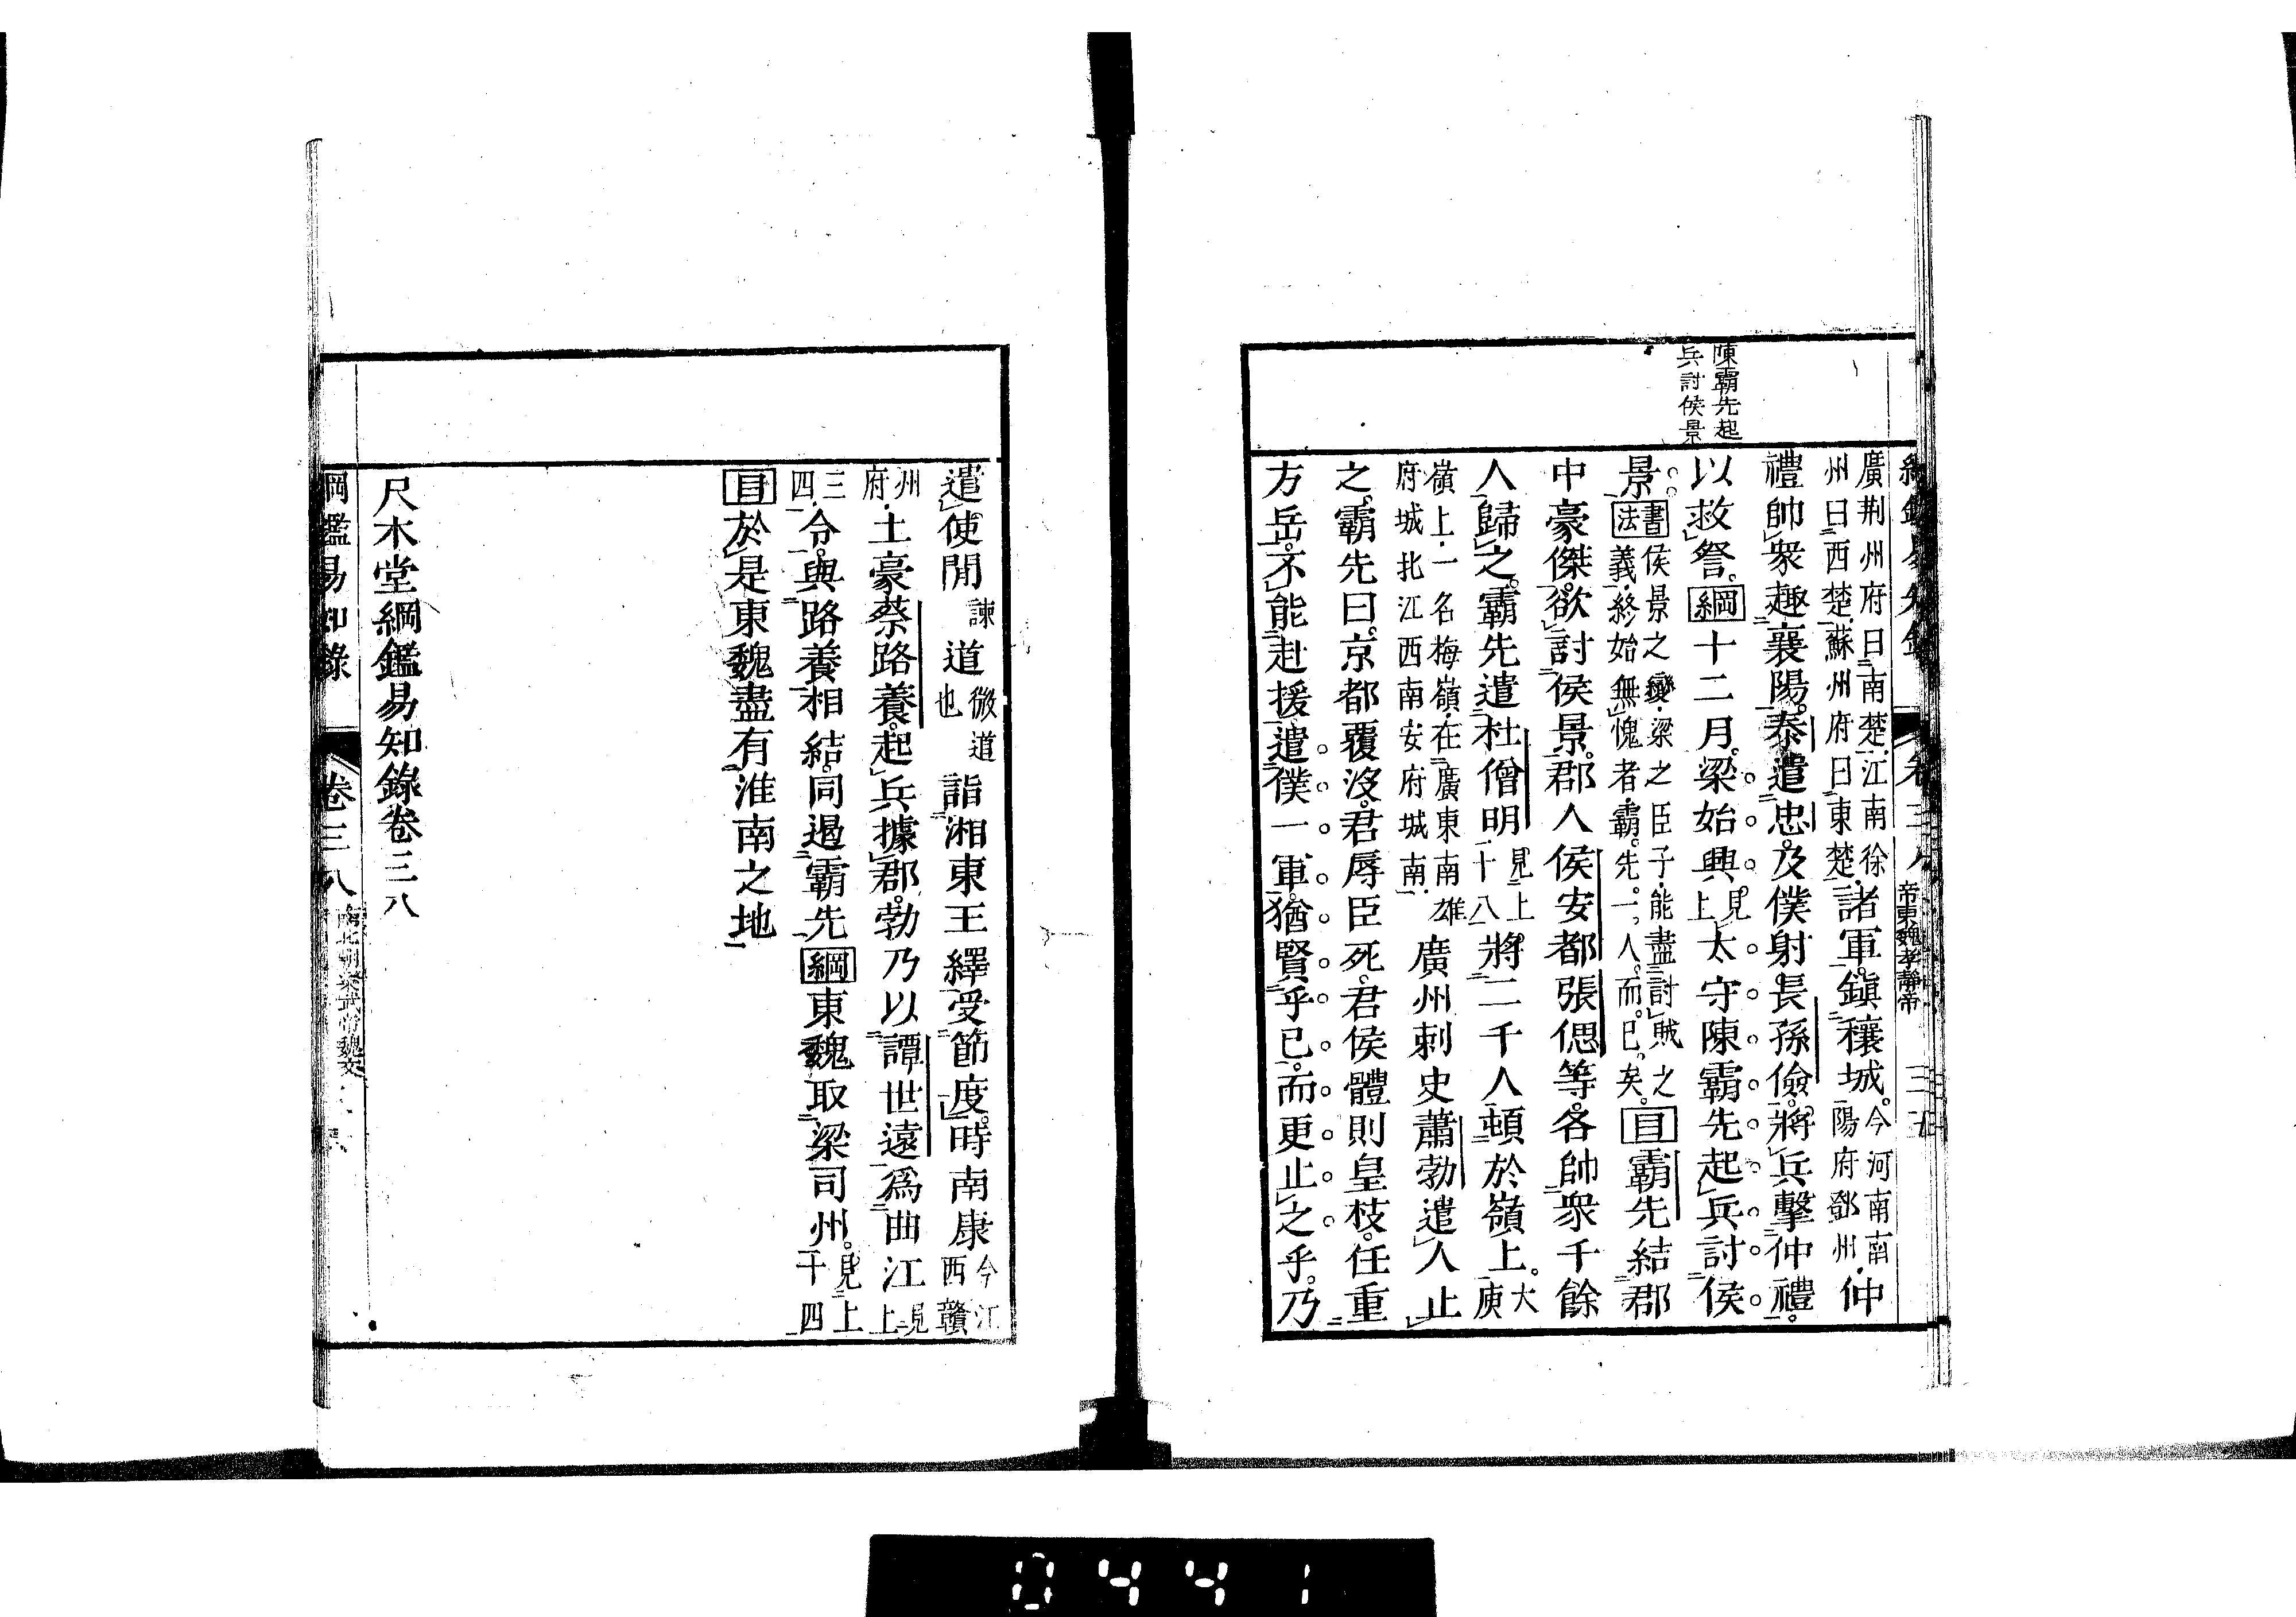 綱鑑易知錄 卷三八 帝東魏孝靜帝
陳霸先起
兵討侯景
廣荆州府曰南楚江南徐
州曰西楚蘇州府曰東楚
諸軍鎮穰城今河南南
陽府鄧州仲
禮帥衆趣襄陽泰遣忠及僕射長孫儉將兵擊仲禮
以救詧綱十二月梁始興見上太守陳霸先起兵討侯
景書法侯景之變梁之臣子能盡討賊之
義終始無愧者霸先一人而已矣目霸先結郡
中豪傑欲討侯景郡人侯安都張偲等各帥衆千餘
人歸之霸先遣杜僧明見上十八將二千人頓於嶺上大庾
嶺上一名梅嶺在廣東南雄
府城北江西南安府城南
廣州刺史蕭勃遣人止
之霸先曰京都覆沒君辱臣死君侯體則皇枝任重
方岳不能赴援遣僕一軍猶賢乎已而更止之乎乃
遣使閒諫道微道也詣湘東王繹受節度時南康今江西贛
州府土豪蔡路養起兵據郡勃乃以譚世遠爲曲江見上
三四令與路養相結同遏霸先綱東魏取梁司州見上千四
目於是東魏盡有淮南之地
尺木堂綱鑑易知錄卷三八
綱鑑易知錄 卷三八 南北朝梁武帝魏文
0441